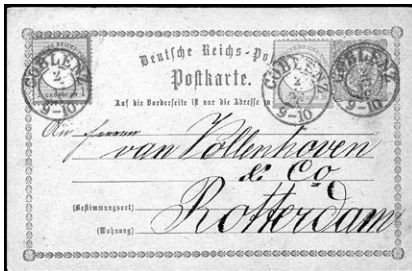 Deutsche Reichs-Pos
Postkarte.
Auf die Vorderseite ist nur die Adresse zu
COBLENZ
2
9-10
COBLENZ
2
9-10
COBLENZ
2
9-10
An Herren
van Vollenhoven
& Co
Rotterdam
(Bestimmungsort)
(Wohnung)